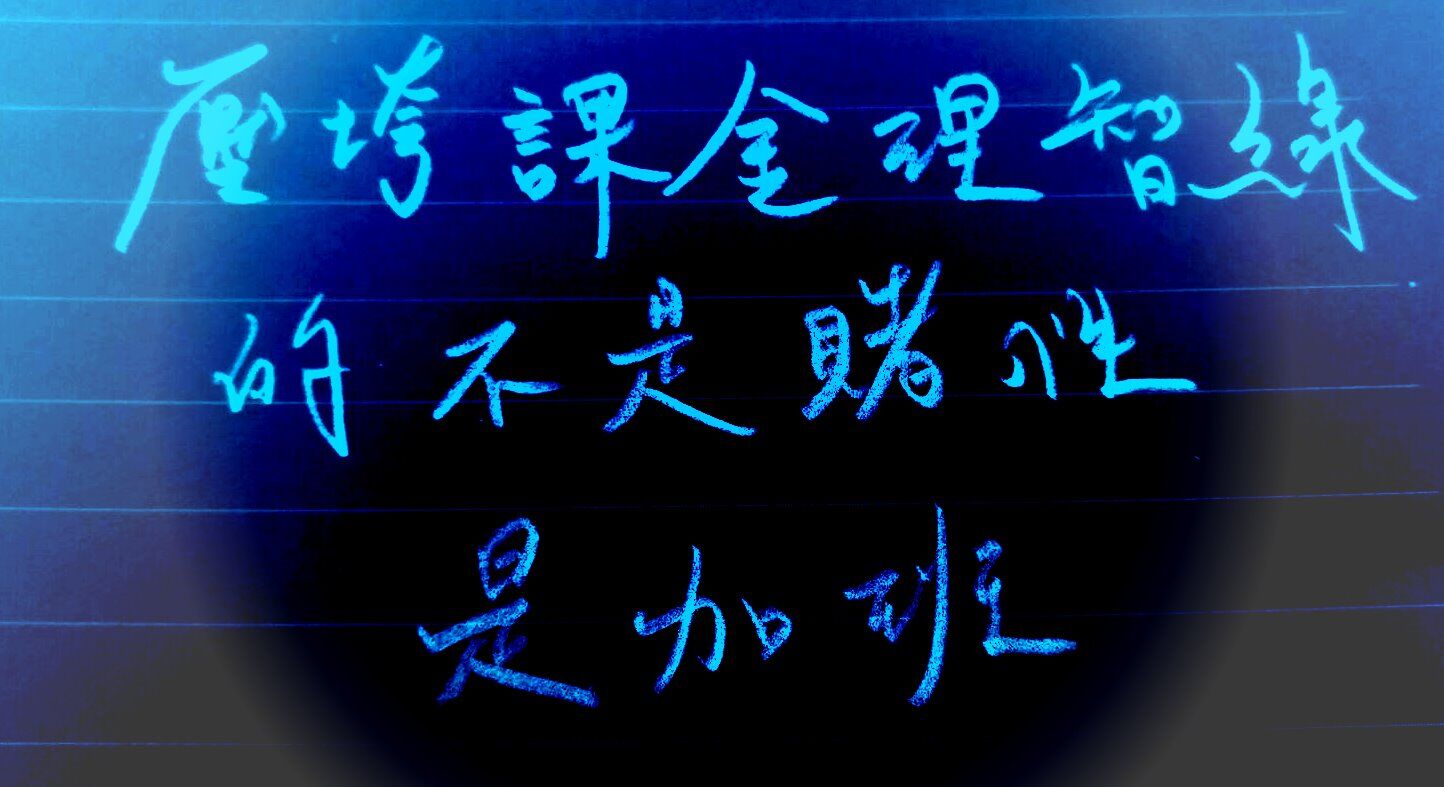 壓垮課金理智線
的不是賭性
是加班